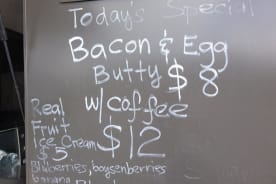 Today's Special
Bacon & Egg
Butty $8
w/ coffee
$12
Real
Fruit
Ice Cream
$5
Blueberries, boysenberries
banana